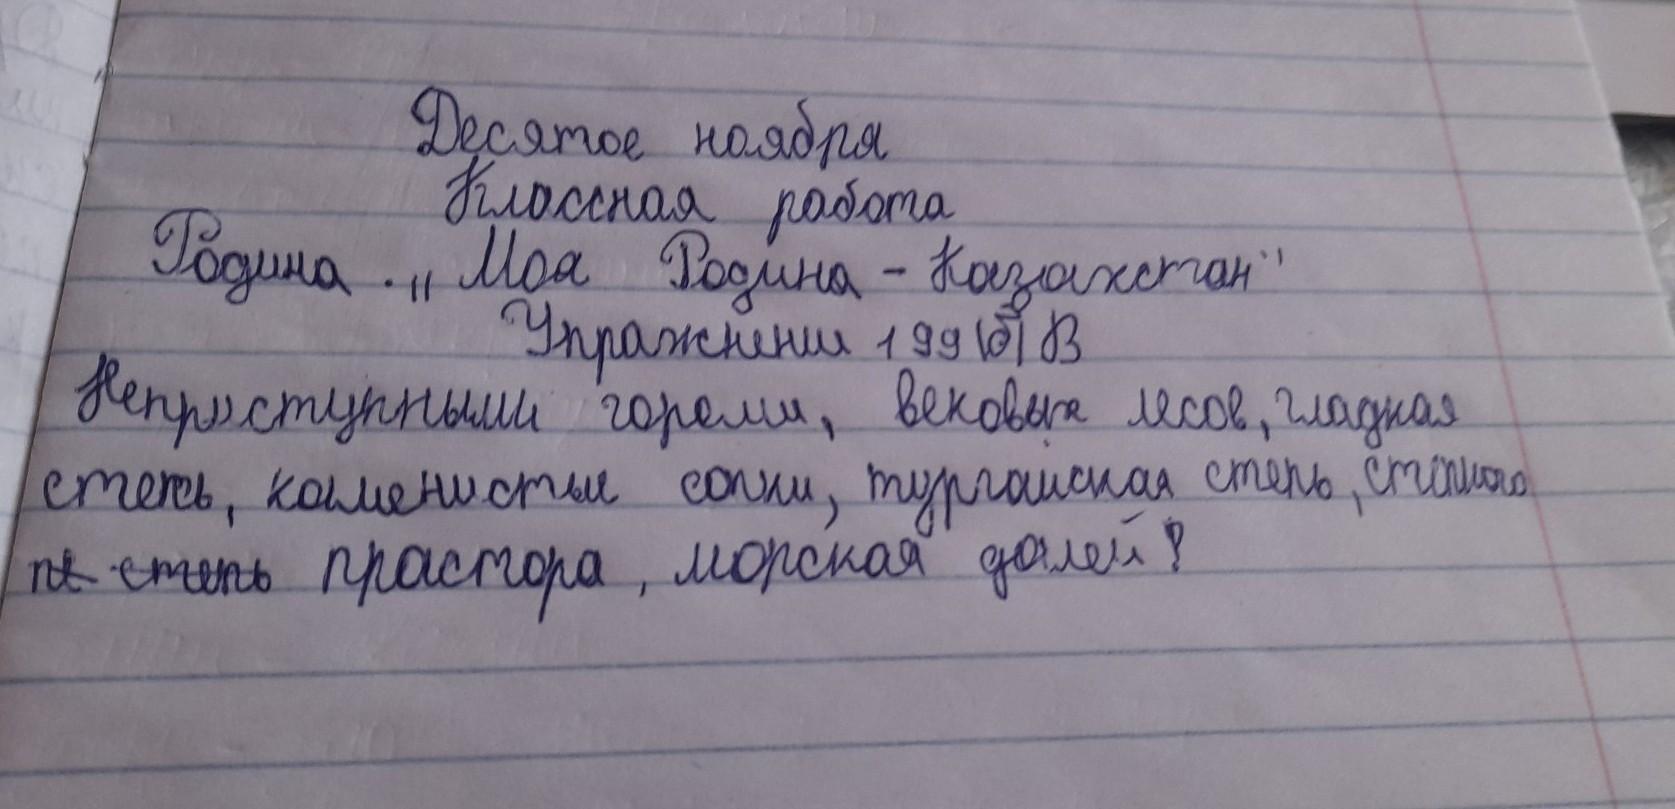 Десятое ноября
Классная работа
Родина. „Моя Родина - Казахстан"
Упражнении 199 (б) В
Неприступными горами, вековых лесов, гладкая
степь, каменистые сопки, тургайская степь, степного
простора, морская далей?